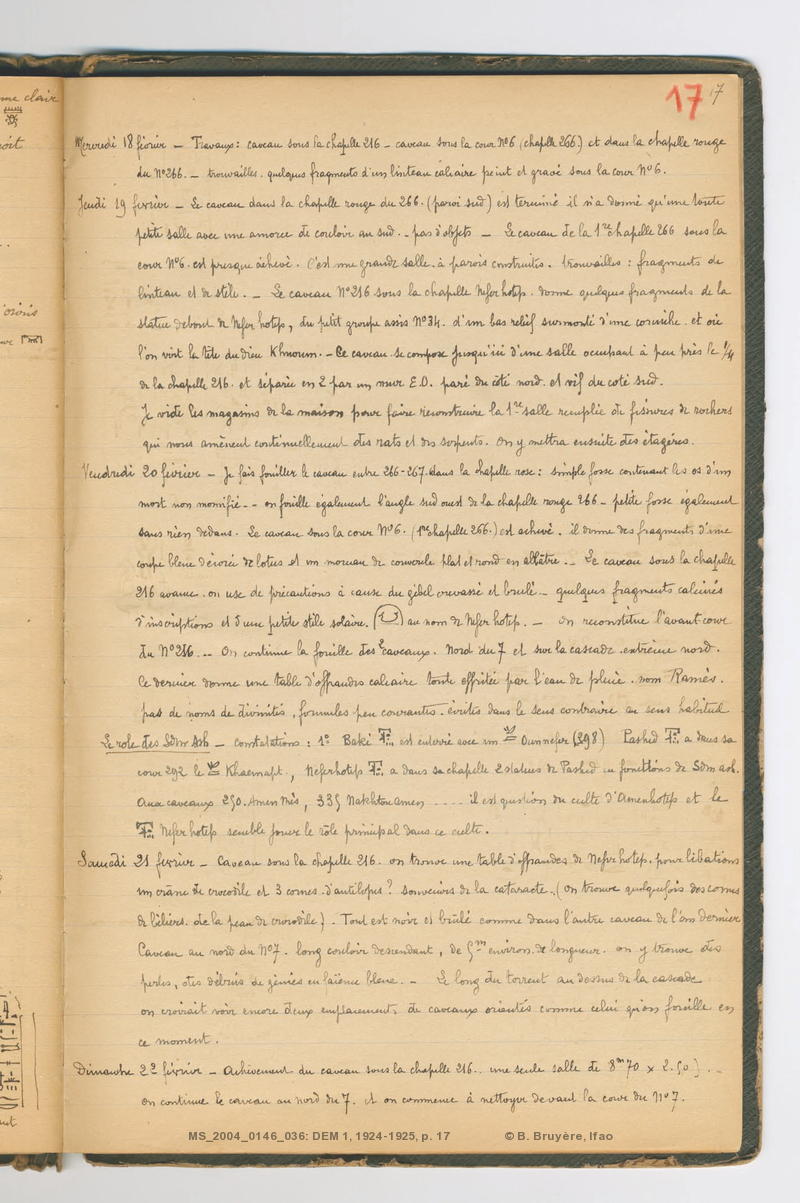 17 7
Mercredi 18 février – Travaux: caveau sous la chapelle 216 – caveau sous la cour N°6 (chapelle 266) et dans la chapelle rouge
du N°266. – trouvailles. quelques fragments d'un linteau calcaire peint et gravé sous la cour N°6.
Jeudi 19 février – Le caveau dans la chapelle rouge du 266. (paroi sud) est terminé il n'a donné qu'une toute
petite salle avec une amorce de couloir au sud. – pas d'objets – Le caveau de la 1re chapelle 266 sous la
cour N°6. est presque achevé. C'est une grande salle à parois construites. trouvailles: fragments de
linteau et de stèle. – Le caveau N°216 sous la chapelle Nefer hotep. donne quelques fragments de la
statue debout de Nefer hotep, du petit groupe assis N°34. d'un bas relief surmonté d'une corniche. et où
l'on voit la tête du dieu Khnoum. – Ce caveau se compose jusqu'ici d'une salle occupant à peu près le 1/4
de la chapelle 216. et séparée en 2 par un mur E.O. paré du côté nord. et vif du coté sud.
Je vide les magasins de la maison pour faire reconstruire la 1re salle remplie de fissures de rochers
qui nous amènent continuellement des rats et des serpents. On y mettra ensuite des étagères.
Vendredi 20 février – Je fais fouiller le caveau entre 266-267. dans la chapelle rose: simple fosse contenant les os d'un
mort non momifié. – on fouille également l'angle sud ouest de la chapelle rouge 266 – petite fosse egalement
sans rien dedans. Le caveau sous la cour N°6. (1re chapelle 266.) est achevé. il donne des fragments d'une
coupe bleue décorée de lotus et un morceau de couvercle plat et rond en albâtre. – Le caveau sous la chapelle
216 avance. on use de précautions à cause du gébel crevassé et brulé – quelques fragments calcinés
d'inscriptions et d'une petite stèle solaire. au nom de Nefer hotep. – On reconstitue l'avant cour
du N°216. – On continue la fouille des 2 caveaux. Nord du 7 et sur la cascade extrème nord.
Ce dernier donne une table d'offrandes calcaire toute effritée par l'eau de pluie. nom Ramès.
pas de noms de divinités, formules peu courantes. écrites dans le sens contraire au sens habituel
Le role des Sdm Ash – Constatations: 1° Baki est enterré avec un Ounnefer (298) Pashed a dans sa
cour 292 le Khaemapt, Neferhotep a dans sa chapelle 2 statues de Pashed en fonctions de Sdm ash.
Aux caveaux 290. Amen Mès, 335 Nakhtouamen .... il est question du culte d'Amenhotep et le
Nefer hotep semble jouer le rôle principal dans ce culte.
Samedi 21 février – Caveau sous la chapelle 216. on trouve une table d'offrandes de Nefer hotep. pour libations
un crâne de crocodile et 3 cornes d'antilopes? souvenirs de la cataracte. (on trouve quelquefois des cornes
de béliers. de la peau de crocodile). Tout est noir et brûlé comme dans l'autre caveau de l'an dernier
Caveau au nord du N°7. long couloir descendant, de 5m environ de longueur. on y trouve des
perles, des débris de génies en faïence bleue. – Le long du torrent au dessus de la cascade
on croirait voir encore deux emplacements de caveaux orientés comme celui qu'on fouille en
ce moment.
Dimanche 22 février – Achèvement du caveau sous la chapelle 216.. une seule salle de 8m70 x 2.50). –
on continue le caveau au nord du 7. et on commence à nettoyer devant la cour du N°7.
MS_2004_0146_036: DEM 1, 1924-1925, p. 17 © B. Bruyère, Ifao